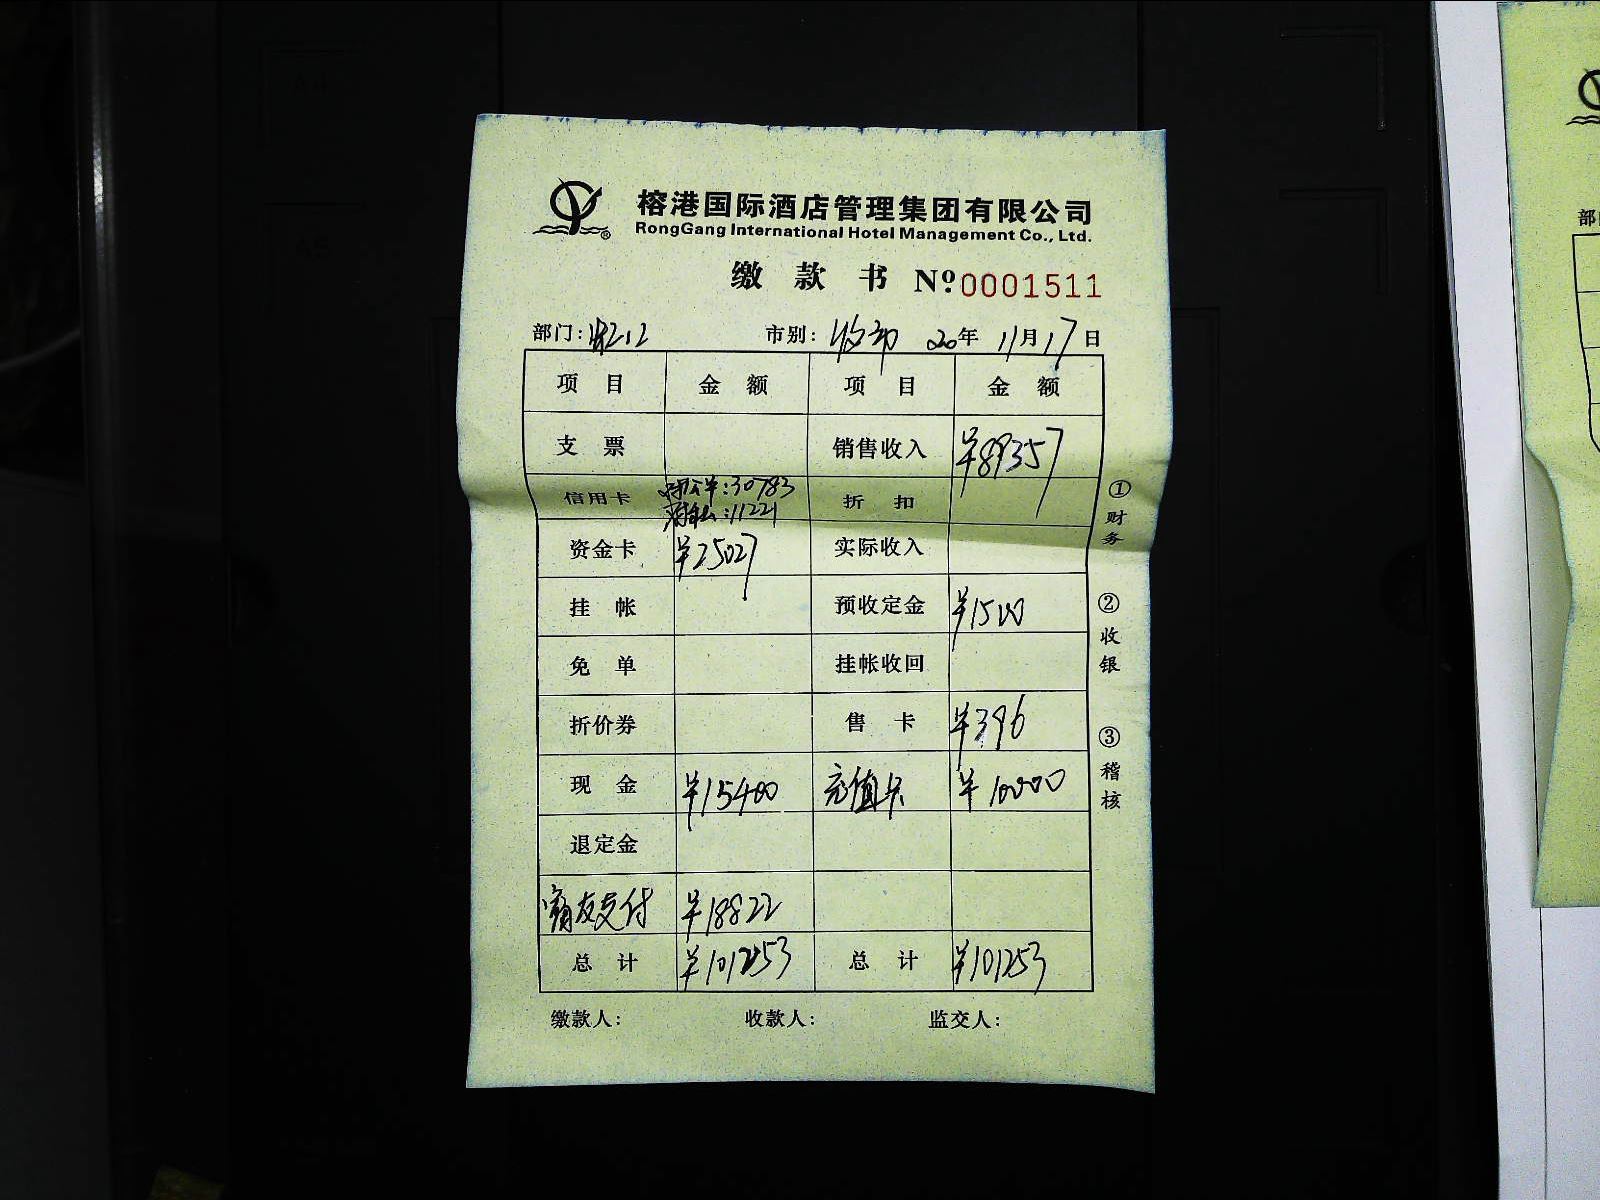 榕港国际酒店管理集团有限公司
RongGang International Hotel Management Co., Ltd.
缴 款 书 Nº 0001511
部门: 市别: 20年 11月17日
项 目 金 额 项 目 金 额
支 票 销售收入 ¥89357
信用卡 :30783 折 扣
:11221
资金卡 ¥25027 实际收入
挂 帐 预收定金 ¥1500
免 单 挂帐收回
折价券 售 卡 ¥396
现 金 ¥15400 充值卡 ¥10000
退定金
富友支付 ¥18822
总 计 ¥101253 总 计 ¥101253
缴款人: 收款人: 监交人:
①财务
②收银
③稽核
部